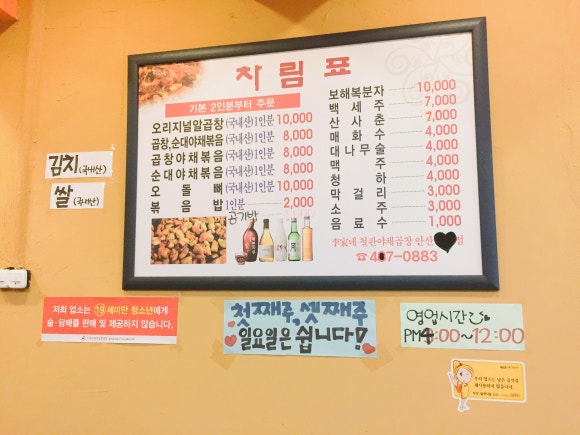 차림표
기본 2인분부터 주문
오리지널알곱창 (국내산)1인분 10,000
곱창,순대야채볶음 (국내산)1인분 8,000
곱창야채볶음 (국내산)1인분 8,000
순대야채볶음 (국내산)1인분 8,000
오돌뼈 (국내산)1인분 10,000
볶음밥 1인분 2,000
공기밥
보해복분자 10,000
백세주 7,000
산사춘 7,000
매화수 5,000
대나무술 4,000
맥주 4,000
청하 4,000
막걸리 3,000
소주 3,000
음료수 1,000
李家네 철판야채곱창 안산 점
☎ 4 7-0883
김치 (국내산)
쌀 (국내산)
저희 업소는 19세미만 청소년에게
술·담배를 판매 및 제공하지 않습니다.
첫째주, 셋째주
일요일은 쉽니다!
영업시간
PM4:00~12:00
우리 업소는 남은 음식을
재사용하지 않습니다.